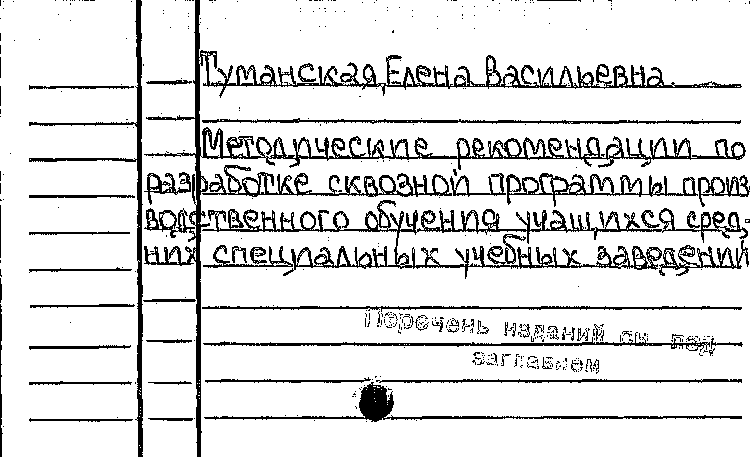 Туманская, Елена Васильевна.
Методические рекомендации по
разработке сквозной программы произ
водственного обучения учащихся сред-
них специальных учебных заведений
Перечень изданий см. под
заглавием